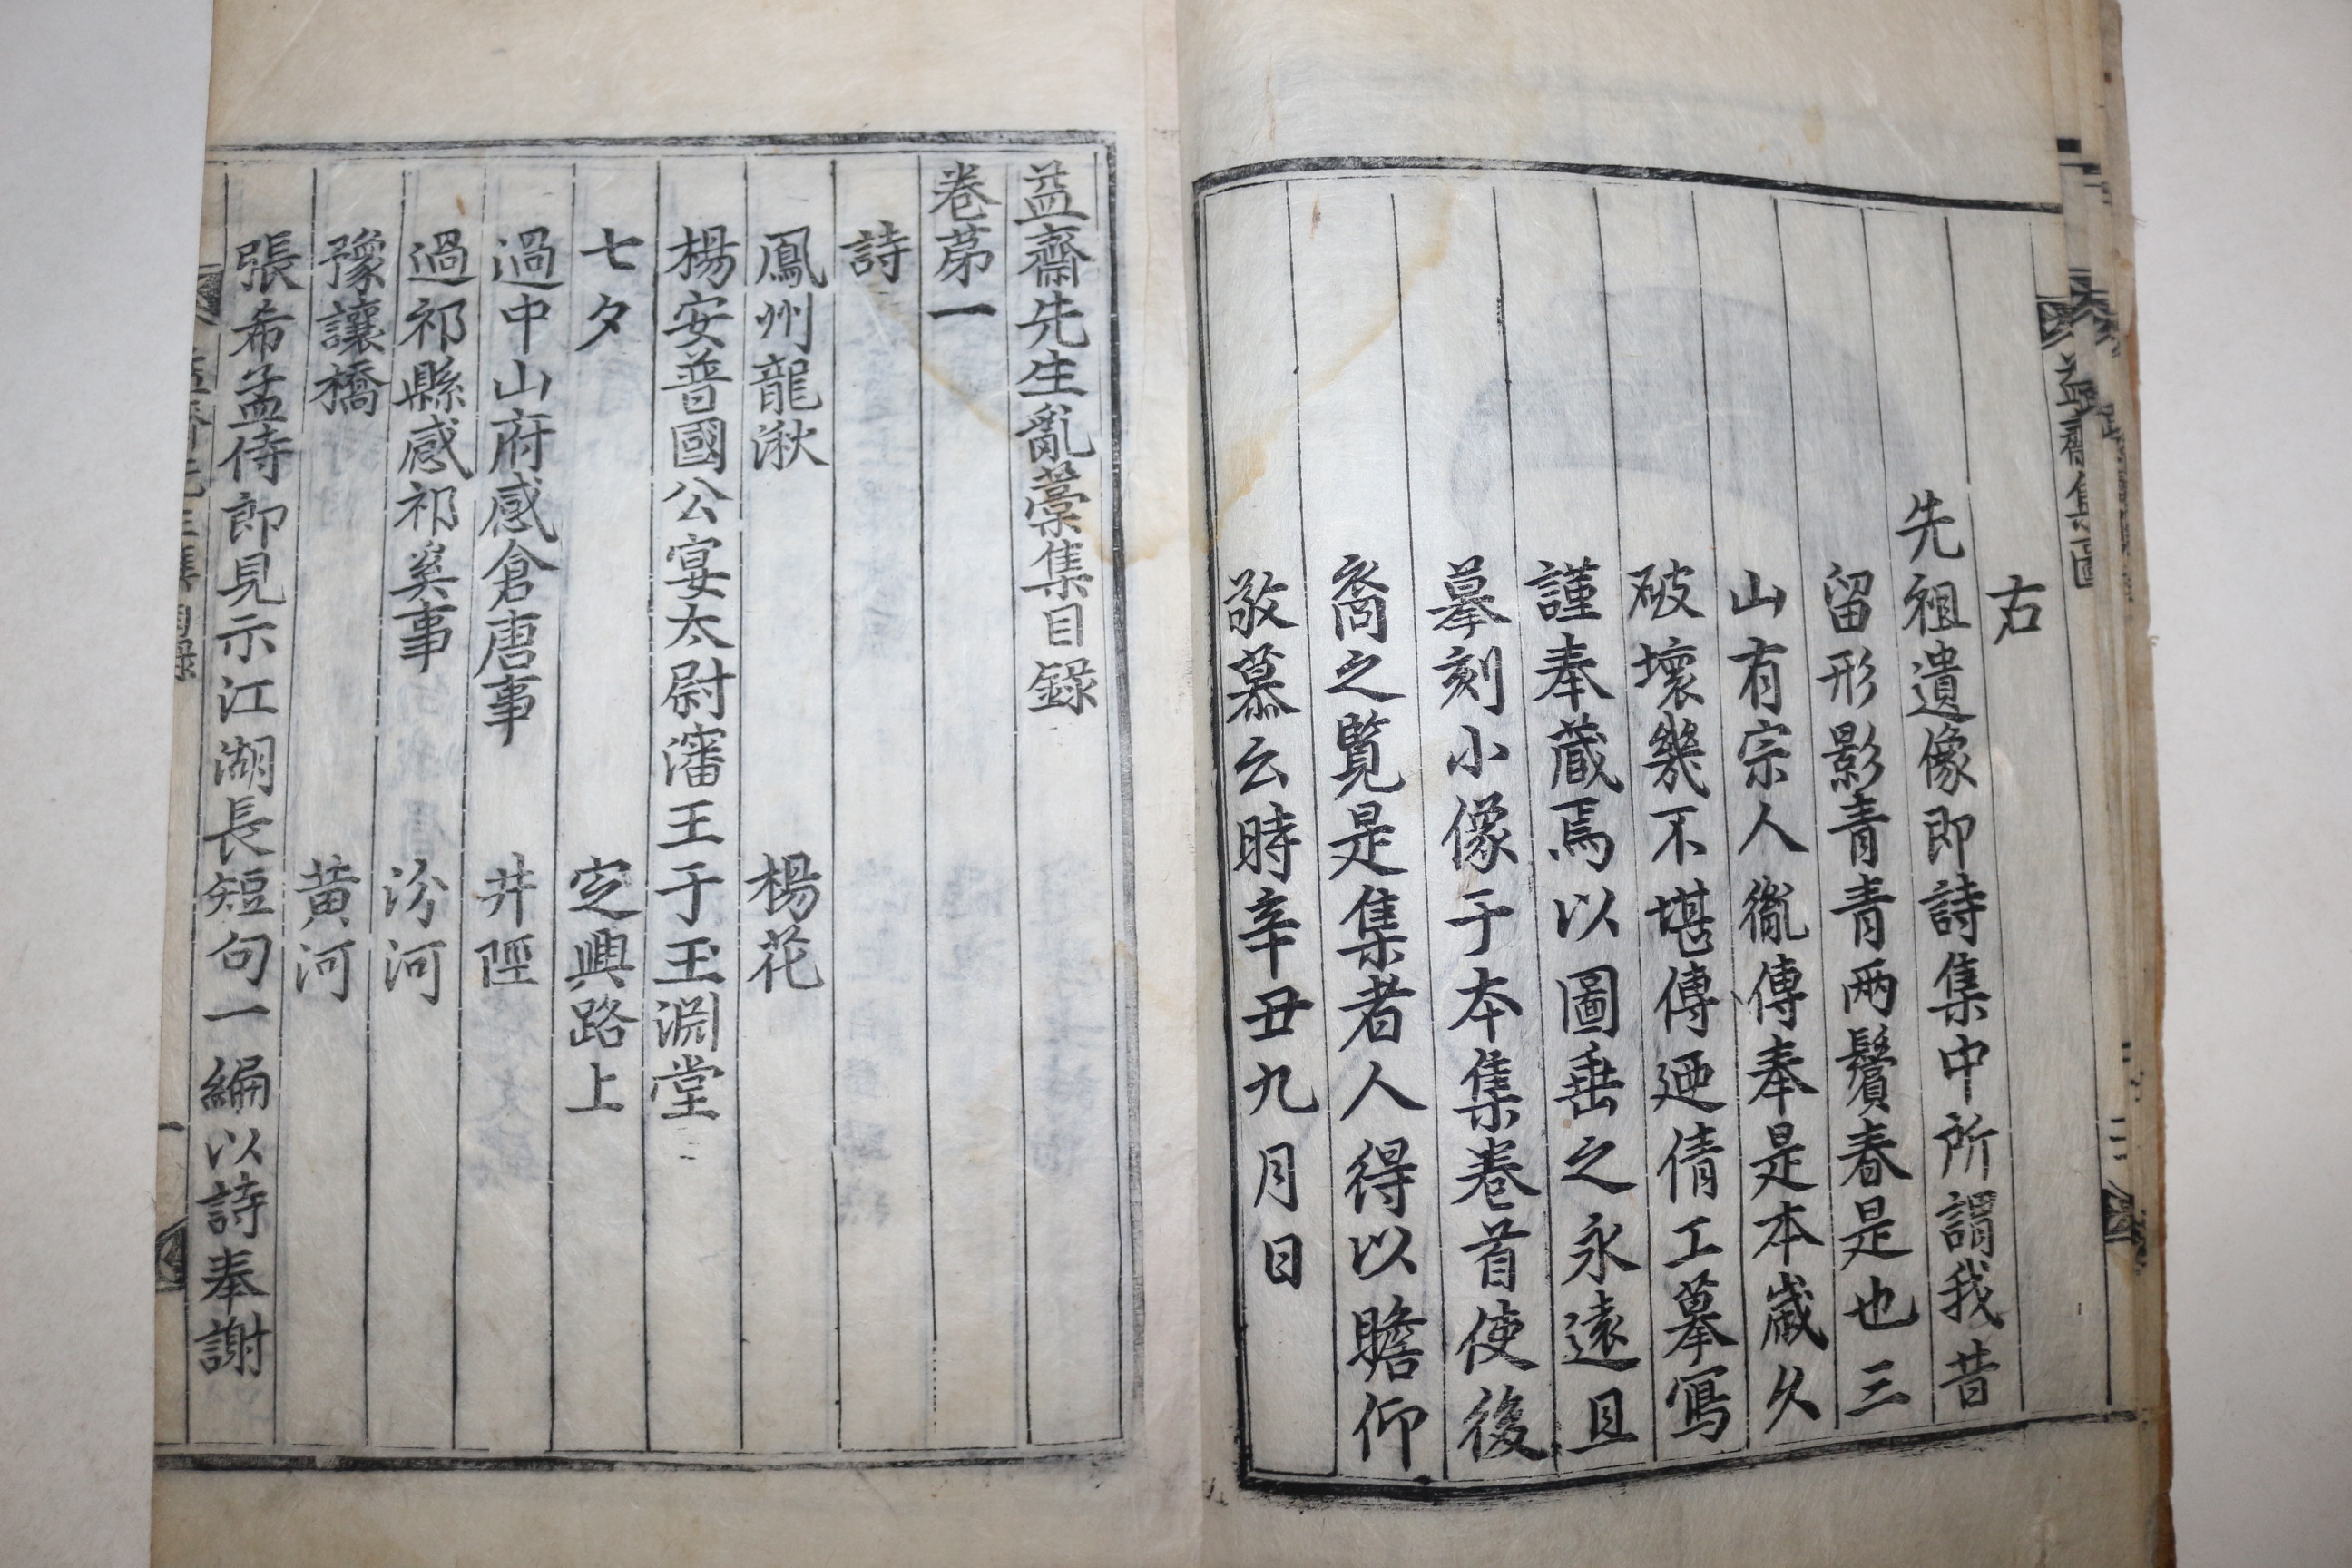 益齋集圖
右
先祖遺像即詩集中所謂我昔
留形影青青兩鬢春是也三
山有宗人胤傳奉是本歲久
破壞幾不堪傳廼倩工摹寫
謹奉蔵焉以圖垂之永遠且
摹刻小像于本集卷首使後
裔之覽是集者人得以瞻仰
敬慕云時辛丑九月日
益齋先生亂藁集目錄
卷苐一
詩
鳳州龍湫 楊花
楊安普國公宴太尉瀋王于玉淵堂
七夕 定興路上
過中山府感倉唐事 井陘
過祁縣感祁奚事 汾河
豫讓橋 黄河
張希孟侍郎見示江湖長短句一編以詩奉謝